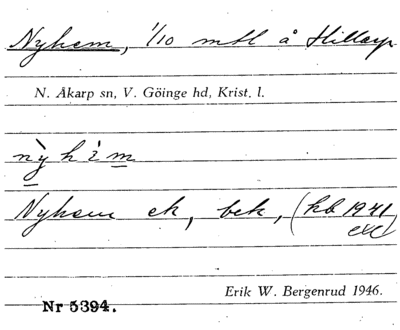 Nyhem, 1/10 mtl å Hillarp
N. Åkarp sn, V. Göinge hd, Krist. l.
nỳhèm
Nyhem ek, bek, (kb 1941
exc)
Erik W. Bergenrud 1946.
Nr 5394.